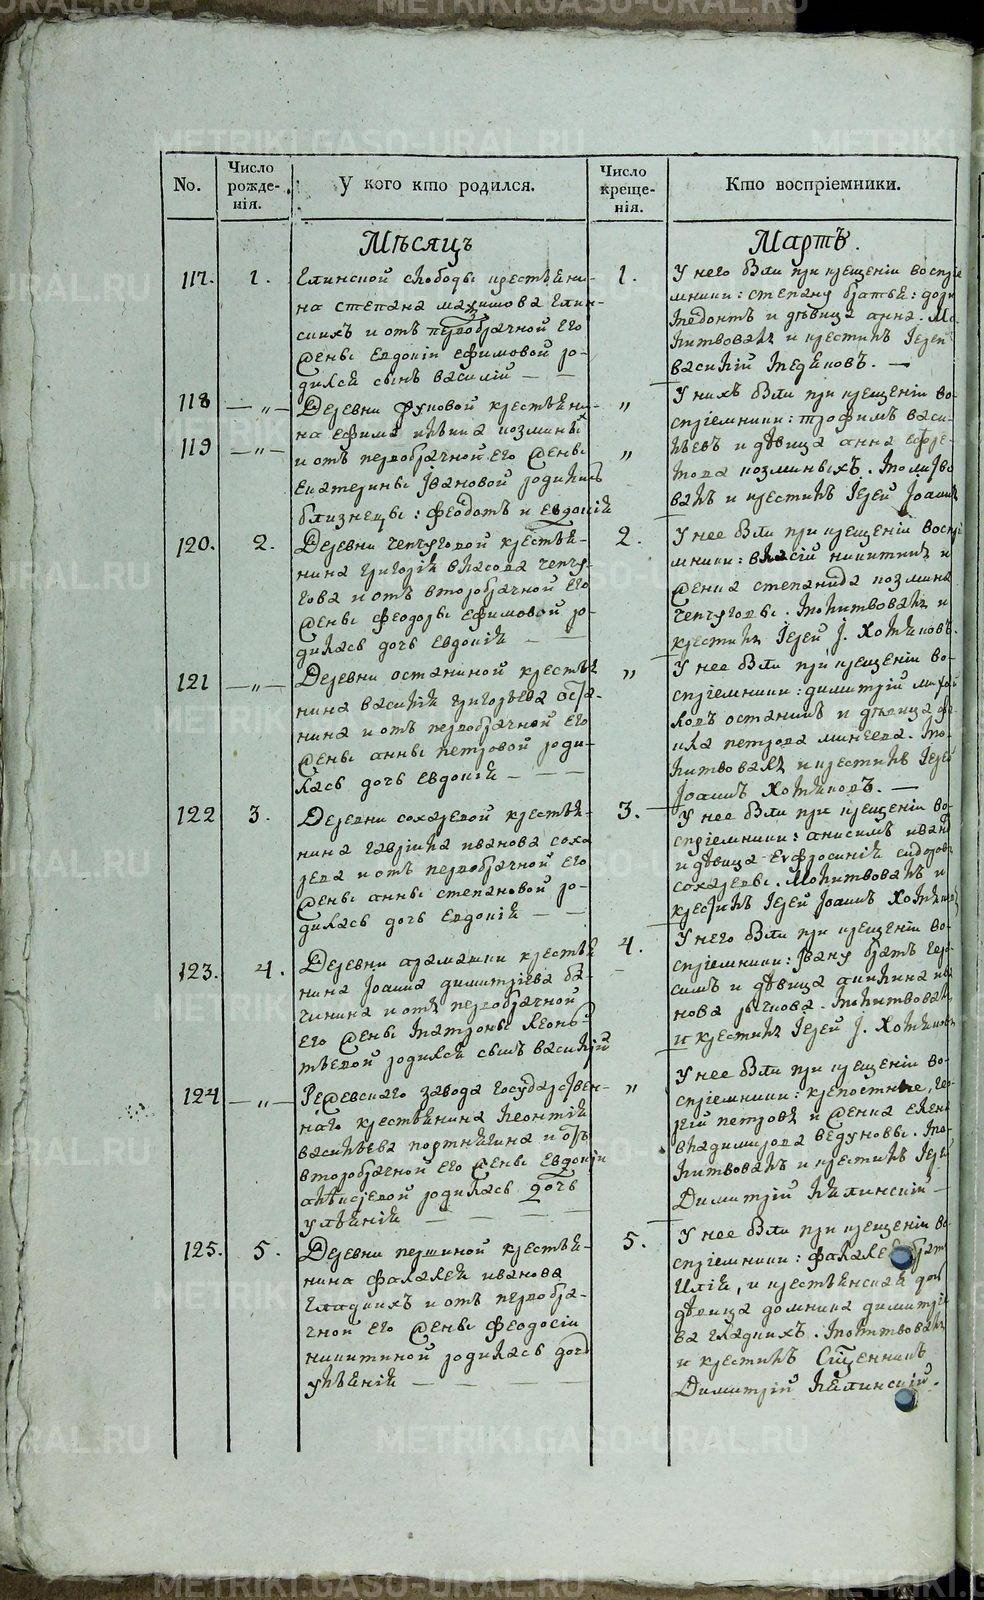 METRIKI.GASO-URAL.RU
No.
Число рожде-нія.
У кого кто родился.
Число креще-нія.
Кто воспріемники.
Мѣсяцъ
Мартъ.
117.
1.
Глинской слободы крестьяни-
на Степана Глин-
скихъ и отъ первобрачной его
жены Евдокіи Ефимовой ро-
дился сынъ Василій
1.
У него были при крещеніи воспріе
мники: Степану братья:
и дѣвица Анна. Мо
литвовалъ и крестилъ Іерей
Василій
118
119
Деревни Фуковой крестьяни-
на Ефима Козмины
и отъ первобрачной его жены
Екатерины Ивановой родились
близнецы: Феодотъ и Евдокій
У нихъ были при крещеніи во-
спріемники: Трофимъ Васи-
льевъ и дѣвица Анна
Козминыхъ. Молитво
валъ и крестилъ Іерей Іоаннъ
120.
2.
Деревни Чепчуговой крестья-
нина Григорія Власова Чепчу-
гова и отъ второбрачной его
жены Феодоры Ефимовой ро-
дилась дочь Евдокія
2.
У нее были при крещеніи воспрі
мники: Власій Никитинъ и
женка Степанида Козмина
Чепчуговы. Молитвовалъ и
крестилъ Іерей І. Хотяновъ.
121
Деревни Останиной крестья
нина Василія Григорьева Оста-
нина и отъ первобрачной его
жены Анны Петровой роди-
лась дочь Евдокія
У нее были при крещеніи во-
спріемники: Димитрій
Останинъ и дѣвица
Петрова Минеева. Мо-
литвовалъ и крестилъ Іерей
Іоаннъ Хотяновъ.
122
3.
Деревни Сохаревой крестья-
нина Гаврила Иванова Соха
рева и отъ первобрачной его
жены Анны Степановой ро-
дилась дочь Евдокія
3.
У нее были при крещеніи во-
спріемники: Анисимъ Иванъ
и дѣвица Евфросинія Сидорова
Сохаревы. Молитвовалъ и
крестилъ Іерей Іоаннъ Хотяновъ
123.
4.
Деревни Арамашки крестья
нина Іоанна Димитріева Ба-
чинина и отъ первобрачной
его жены Матроны Леонь-
тьевой родился сынъ Василій
4.
У него были при крещеніи во-
спріемники: Ивану братъ Гера-
симъ и дѣвица Аникина
нова Рычкова. Молитвовалъ
и крестилъ Іерей І. Хотяновъ
124
Режевскаго завода государствен-
наго крестьянина Леонтія
Васильева Портнягина и отъ
второбрачной его жены Евдокіи
Алексѣевой родилась дочь
Уліянія
У нее были при крещеніи во-
спріемники: крепостные,
Петровъ и женка Елена
Владимирова Ведуновы. Мо-
литвовалъ и крестилъ Іерей
Димитрій Калинскій
125.
5.
Деревни Першиной крестья-
нина Фалалея Иванова
Гладкихъ и отъ первобра-
чной его жены Феодосіи
Никитиной родилась дочь
Уліянія
5.
У нее были при крещеніи во-
спріемники: Фалалею братъ
Илія, и крестьянская дочь
дѣвица Домника Димитріе
ва Гладкихъ. Молитвовалъ
и крестилъ Сщенникъ
Димитрій Калинскій.